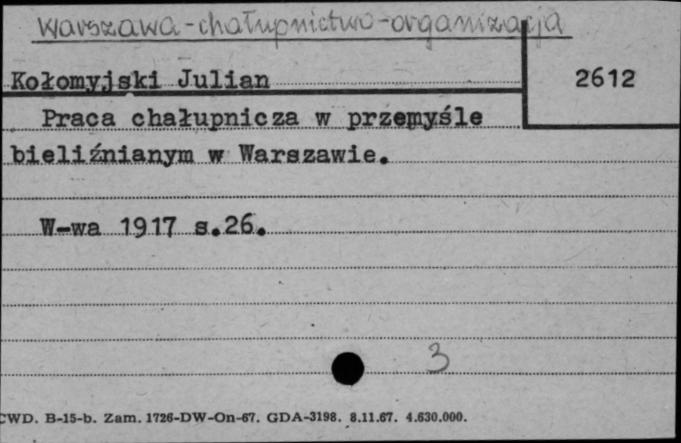 Warszawa-chałupnictwo-organizacja
Kołomyjski Julian
2612
Praca chałupnicza w przemyśle
bieliźnianym w Warszawie.
W-wa 1917 s.26.
3
CWD. B-15-b. Zam. 1726-DW-On-67. GDA-3198. 8.11.67. 4.630.000.